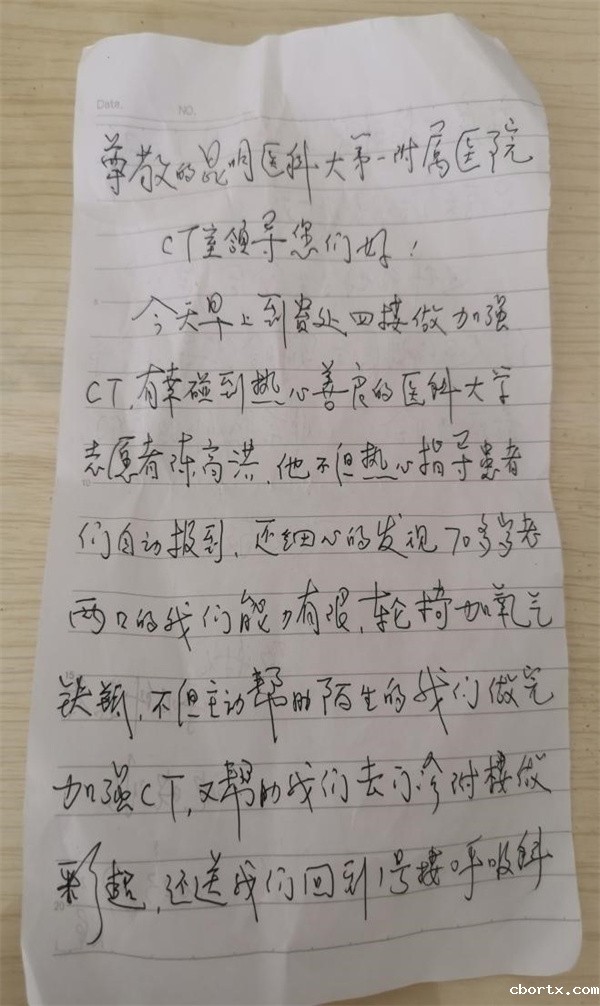 Date.
NO.
尊敬的昆明医科大第一附属医院
CT室领导您们好！
今天早上到贵处四楼做加强
CT,有幸碰到热心善良的医科大学
志愿者陈高洪,他不但热心指导患者
们自动报到,还细心的发现70多岁老
两口的我们能力有限,轮椅加氧气
铁瓶,不但主动帮助陌生的我们做完
加强CT,又帮助我们去门诊附楼做
彩超,还送我们回到1号楼呼吸科
cbortx.com